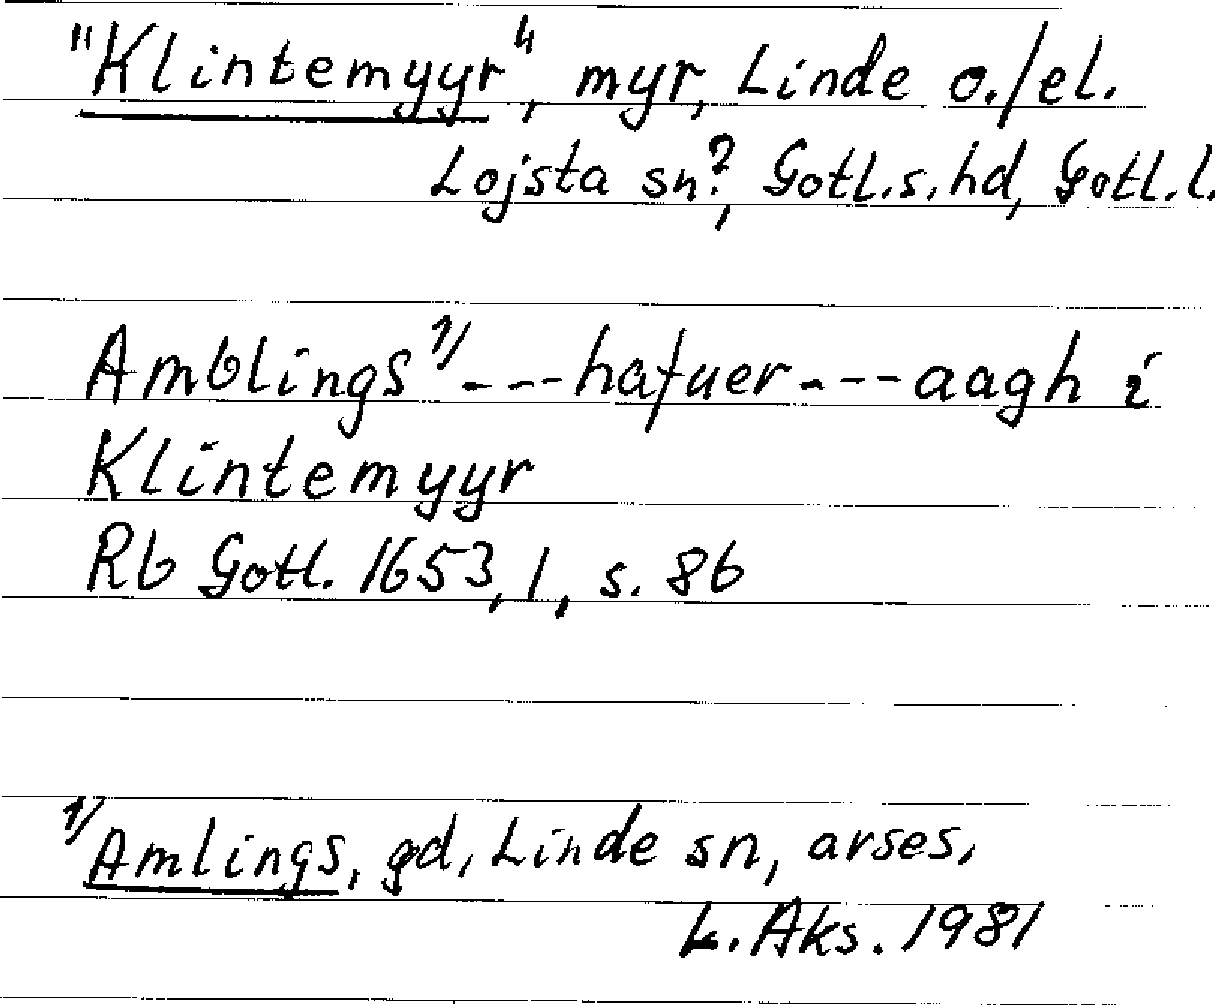 "Klintemyyr", myr, Linde o./el.
Lojsta sn?, Gotl.s.hd, Gotl.l.
Amblings 1/ ---hafuer---aagh i
Klintemyyr
Rb Gotl. 1653, 1, s. 86
1/ Amlings, gd, Linde sn, arses,
L. Aks. 1981